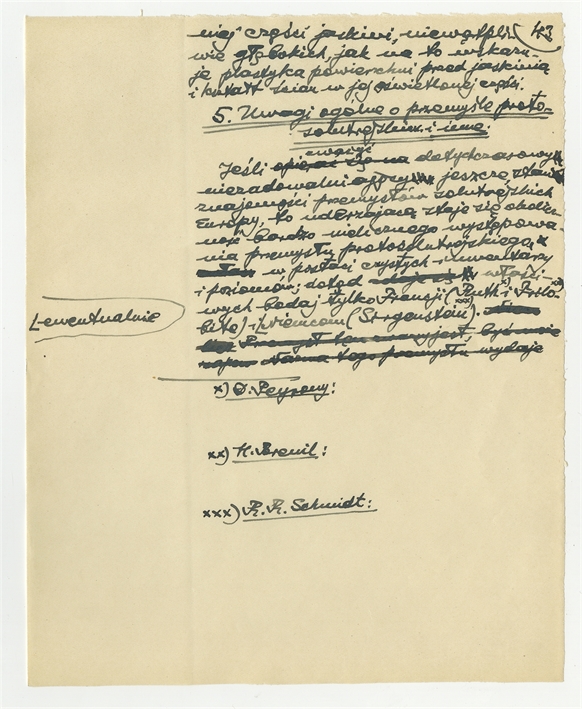 43
niej części jaskini, niewątpli-
wie głębokich, jak na to wskazu-
je plastyka powierzchni przed jaskinią
i kształt ścian w jej oświetlonej części.
5. Uwagi ogólne o przemyśle proto-
solutrejskim i inne.
zważyć
Jeśli opierać się na dotychczasowy
niezadowalniający jeszcze stan
znajomości przemysłów solutrejskich
Europy, to uderzającą staje się okolicz-
ność bardzo nielicznego występowa-
nia przemysłu protosolutrejskiego,
w postaci czystych inwentarzy
i poziomów, dotąd właści-
wych bodaj tylko Francji (Ruth i Trilo-
bite) i Niemcom (Sirgenstein).
Przemysł ten
tego przemysłu wydaje
L-ewentualnie
x) D. Peyrony:
xx) H. Breuil:
xxx) R. R. Schmidt: